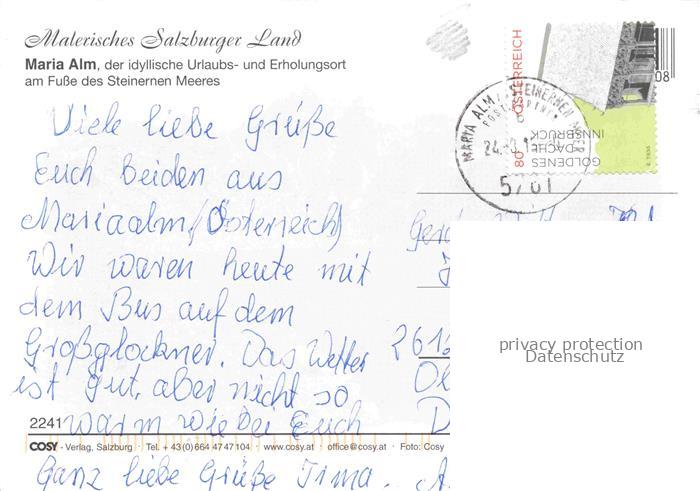 Malerisches Salzburger Land
Maria Alm, der idyllische Urlaubs- und Erholungsort
am Fuße des Steinernen Meeres
Viele liebe Grüße
Euch beiden aus
Mariaalm (Österreich)
Wir waren heute mit
dem Bus auf dem
Großglockner. Das Wetter
ist gut, aber nicht so
warm wie bei Euch
Ganz liebe Grüße Irma.
2241
COSY - Verlag, Salzburg · Tel. +43(0)664 47 47 104 · www.cosy.at · office@cosy.at · Foto: Cosy
ÖSTERREICH
80
GOLDENES
DACHL
INNSBRUCK
MARIA ALM / STEINERNEN MEER
5761
08
privacy protection
Datenschutz